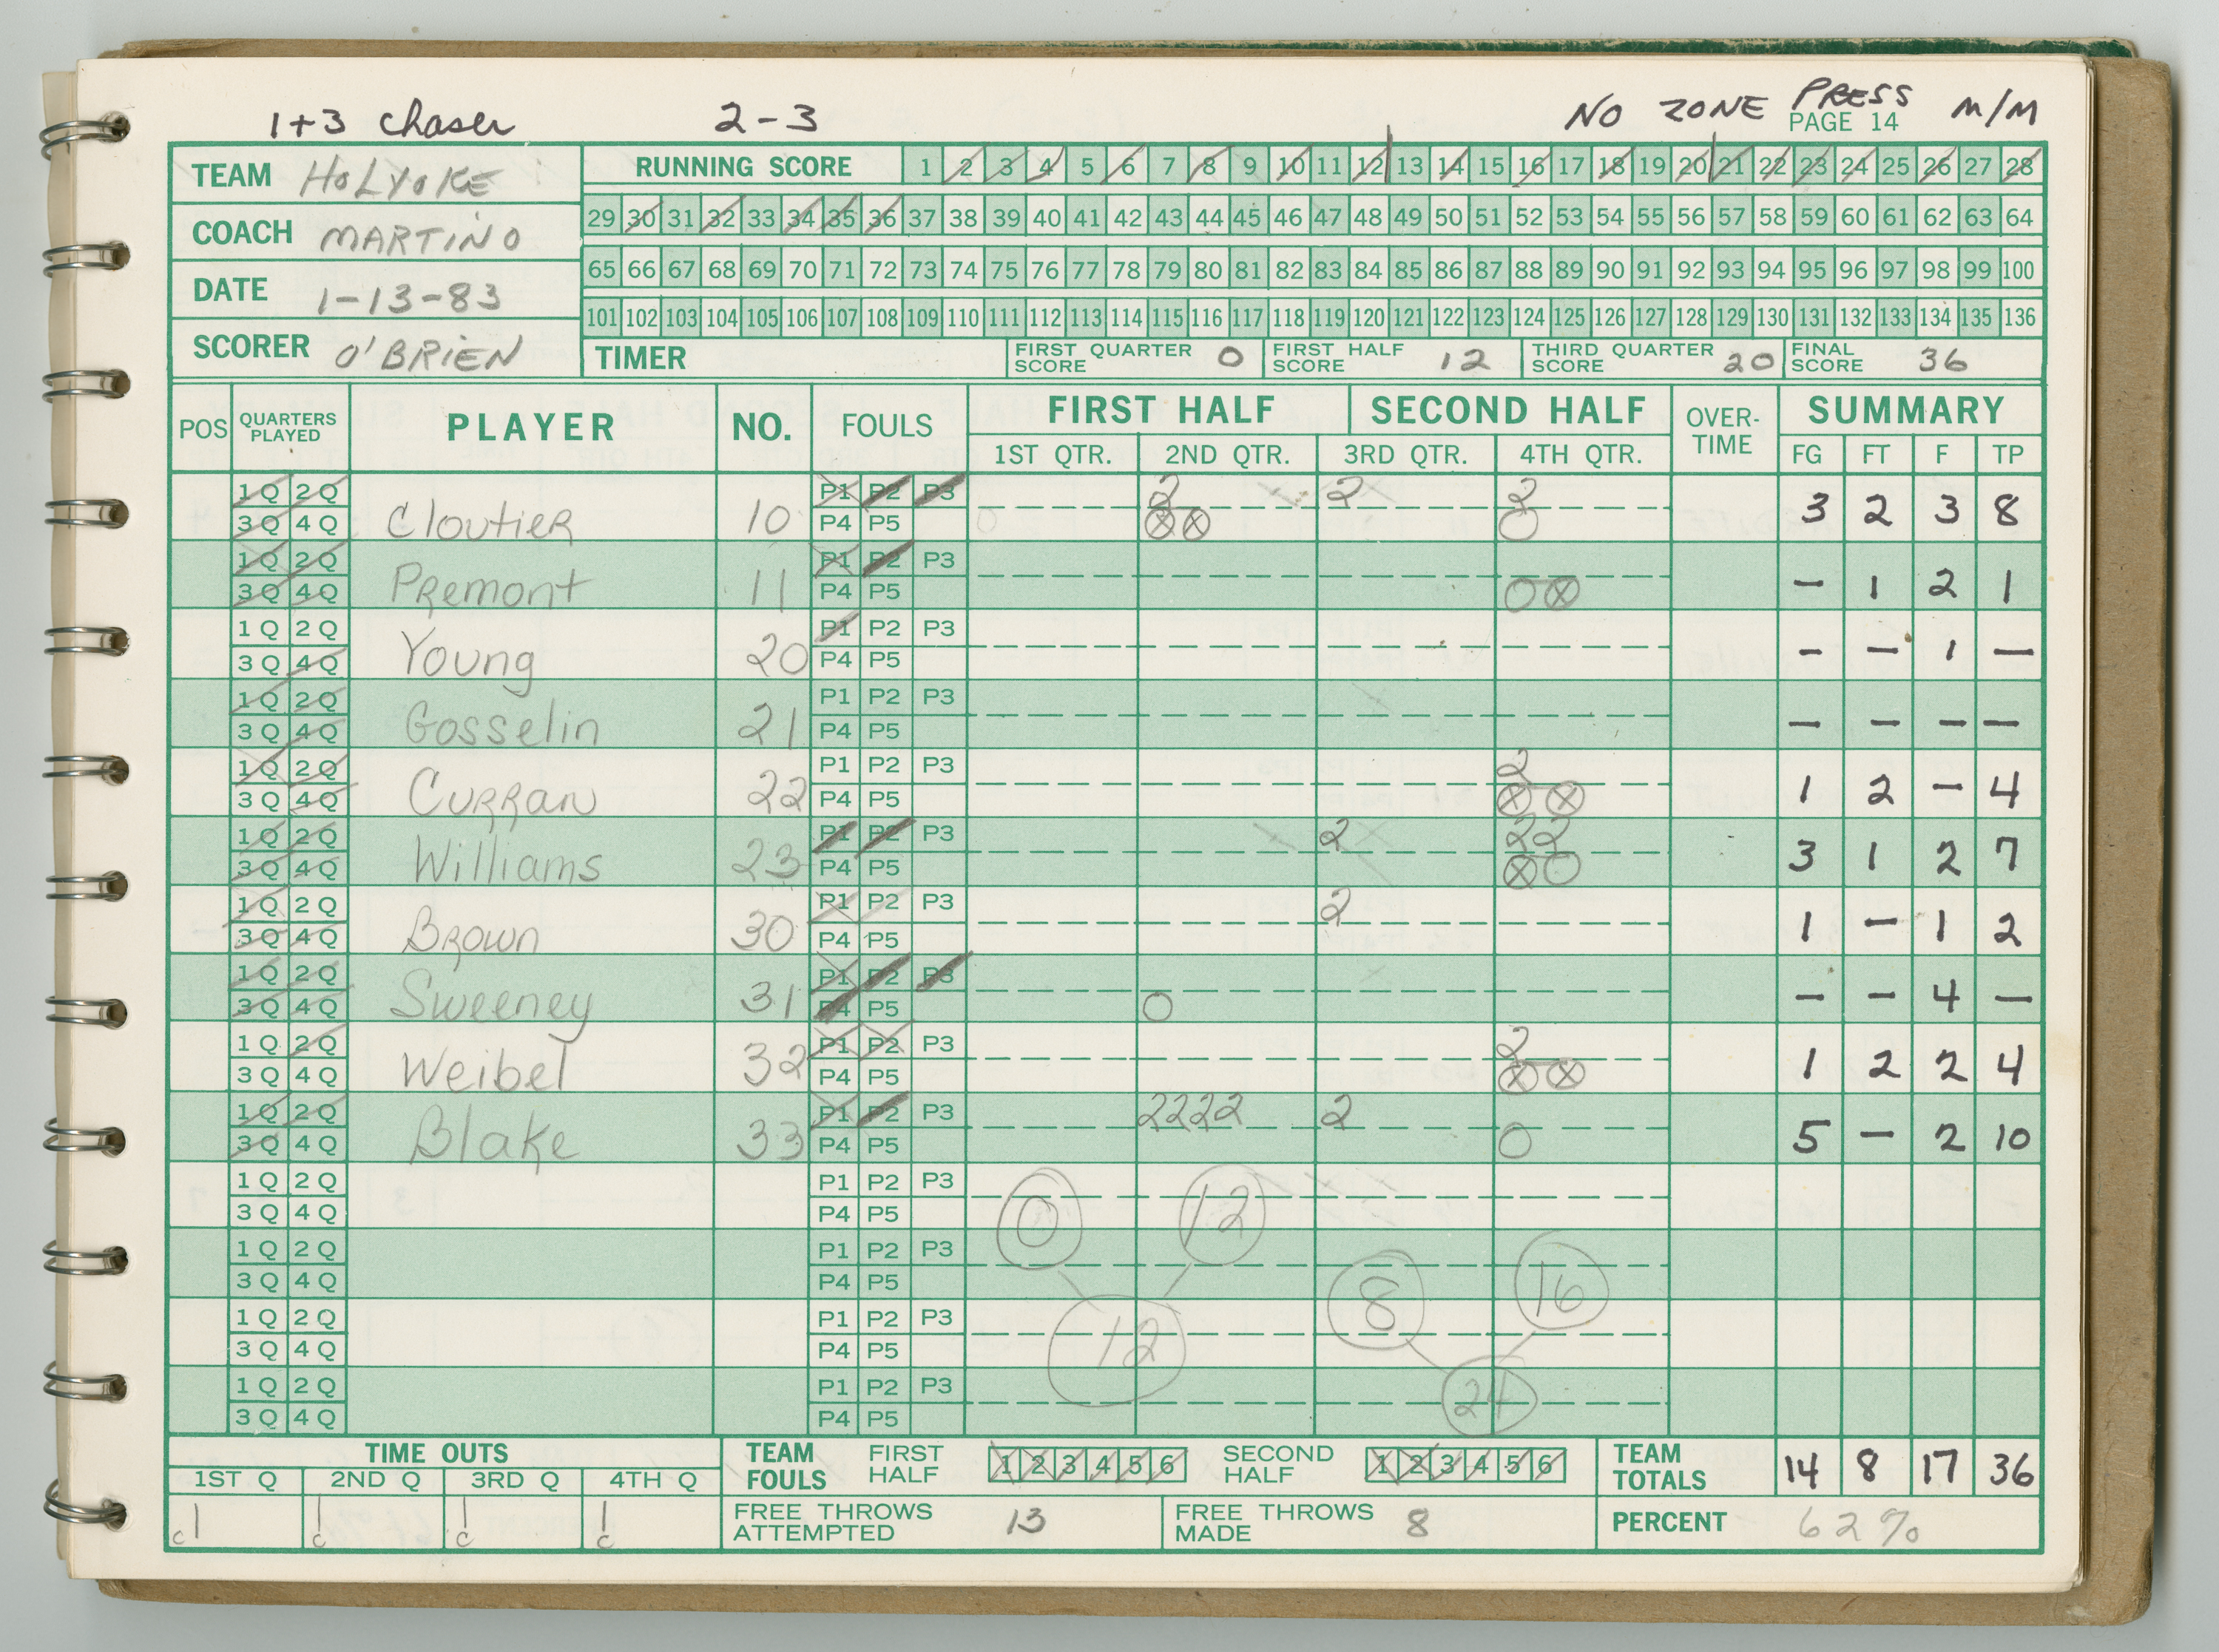 1+3 Chaser 2-3 NO ZONE PRESS M/M
PAGE 14
TEAM HOLYOKE
COACH MARTINO
DATE 1-13-83
SCORER O'BRIEN
RUNNING SCORE 1 2 3 4 5 6 7 8 9 10 11 12 13 14 15 16 17 18 19 20 21 22 23 24 25 26 27 28
29 30 31 32 33 34 35 36 37 38 39 40 41 42 43 44 45 46 47 48 49 50 51 52 53 54 55 56 57 58 59 60 61 62 63 64
65 66 67 68 69 70 71 72 73 74 75 76 77 78 79 80 81 82 83 84 85 86 87 88 89 90 91 92 93 94 95 96 97 98 99 100
101 102 103 104 105 106 107 108 109 110 111 112 113 114 115 116 117 118 119 120 121 122 123 124 125 126 127 128 129 130 131 132 133 134 135 136
TIMER FIRST QUARTER SCORE 0 FIRST HALF SCORE 12 THIRD QUARTER SCORE 20 FINAL SCORE 36
POS QUARTERS PLAYED PLAYER NO. FOULS FIRST HALF SECOND HALF OVER-TIME SUMMARY
1ST QTR. 2ND QTR. 3RD QTR. 4TH QTR. FG FT F TP
1Q 2Q P1 P2 P3 2 2 2
3Q 4Q Cloutier 10 P4 P5 3 2 3 8
1Q 2Q P1 P2 P3
3Q 4Q Premont 11 P4 P5 - 1 2 1
1Q 2Q P1 P2 P3
3Q 4Q Young 20 P4 P5 - - 1 -
1Q 2Q P1 P2 P3
3Q 4Q Gosselin 21 P4 P5 - - - -
1Q 2Q P1 P2 P3 2
3Q 4Q Curran 22 P4 P5 1 2 - 4
1Q 2Q P1 P2 P3 2 22
3Q 4Q Williams 23 P4 P5 3 1 2 7
1Q 2Q P1 P2 P3 2
3Q 4Q Brown 30 P4 P5 1 - 1 2
1Q 2Q P1 P2 P3
3Q 4Q Sweeney 31 P4 P5 - - 4 -
1Q 2Q P1 P2 P3 2
3Q 4Q Weibel 32 P4 P5 1 2 2 4
1Q 2Q P1 P2 P3 2222 2
3Q 4Q Blake 33 P4 P5 5 - 2 10
1Q 2Q P1 P2 P3
3Q 4Q P4 P5 0 12
1Q 2Q P1 P2 P3
3Q 4Q P4 P5 8 16
1Q 2Q P1 P2 P3
3Q 4Q P4 P5 12
1Q 2Q P1 P2 P3
3Q 4Q P4 P5 24
TIME OUTS TEAM FOULS FIRST HALF 1 2 3 4 5 6 SECOND HALF 1 2 3 4 5 6 TEAM TOTALS 14 8 17 36
1ST Q 2ND Q 3RD Q 4TH Q
c1 1c 1c 1c FREE THROWS ATTEMPTED 13 FREE THROWS MADE 8 PERCENT 62%